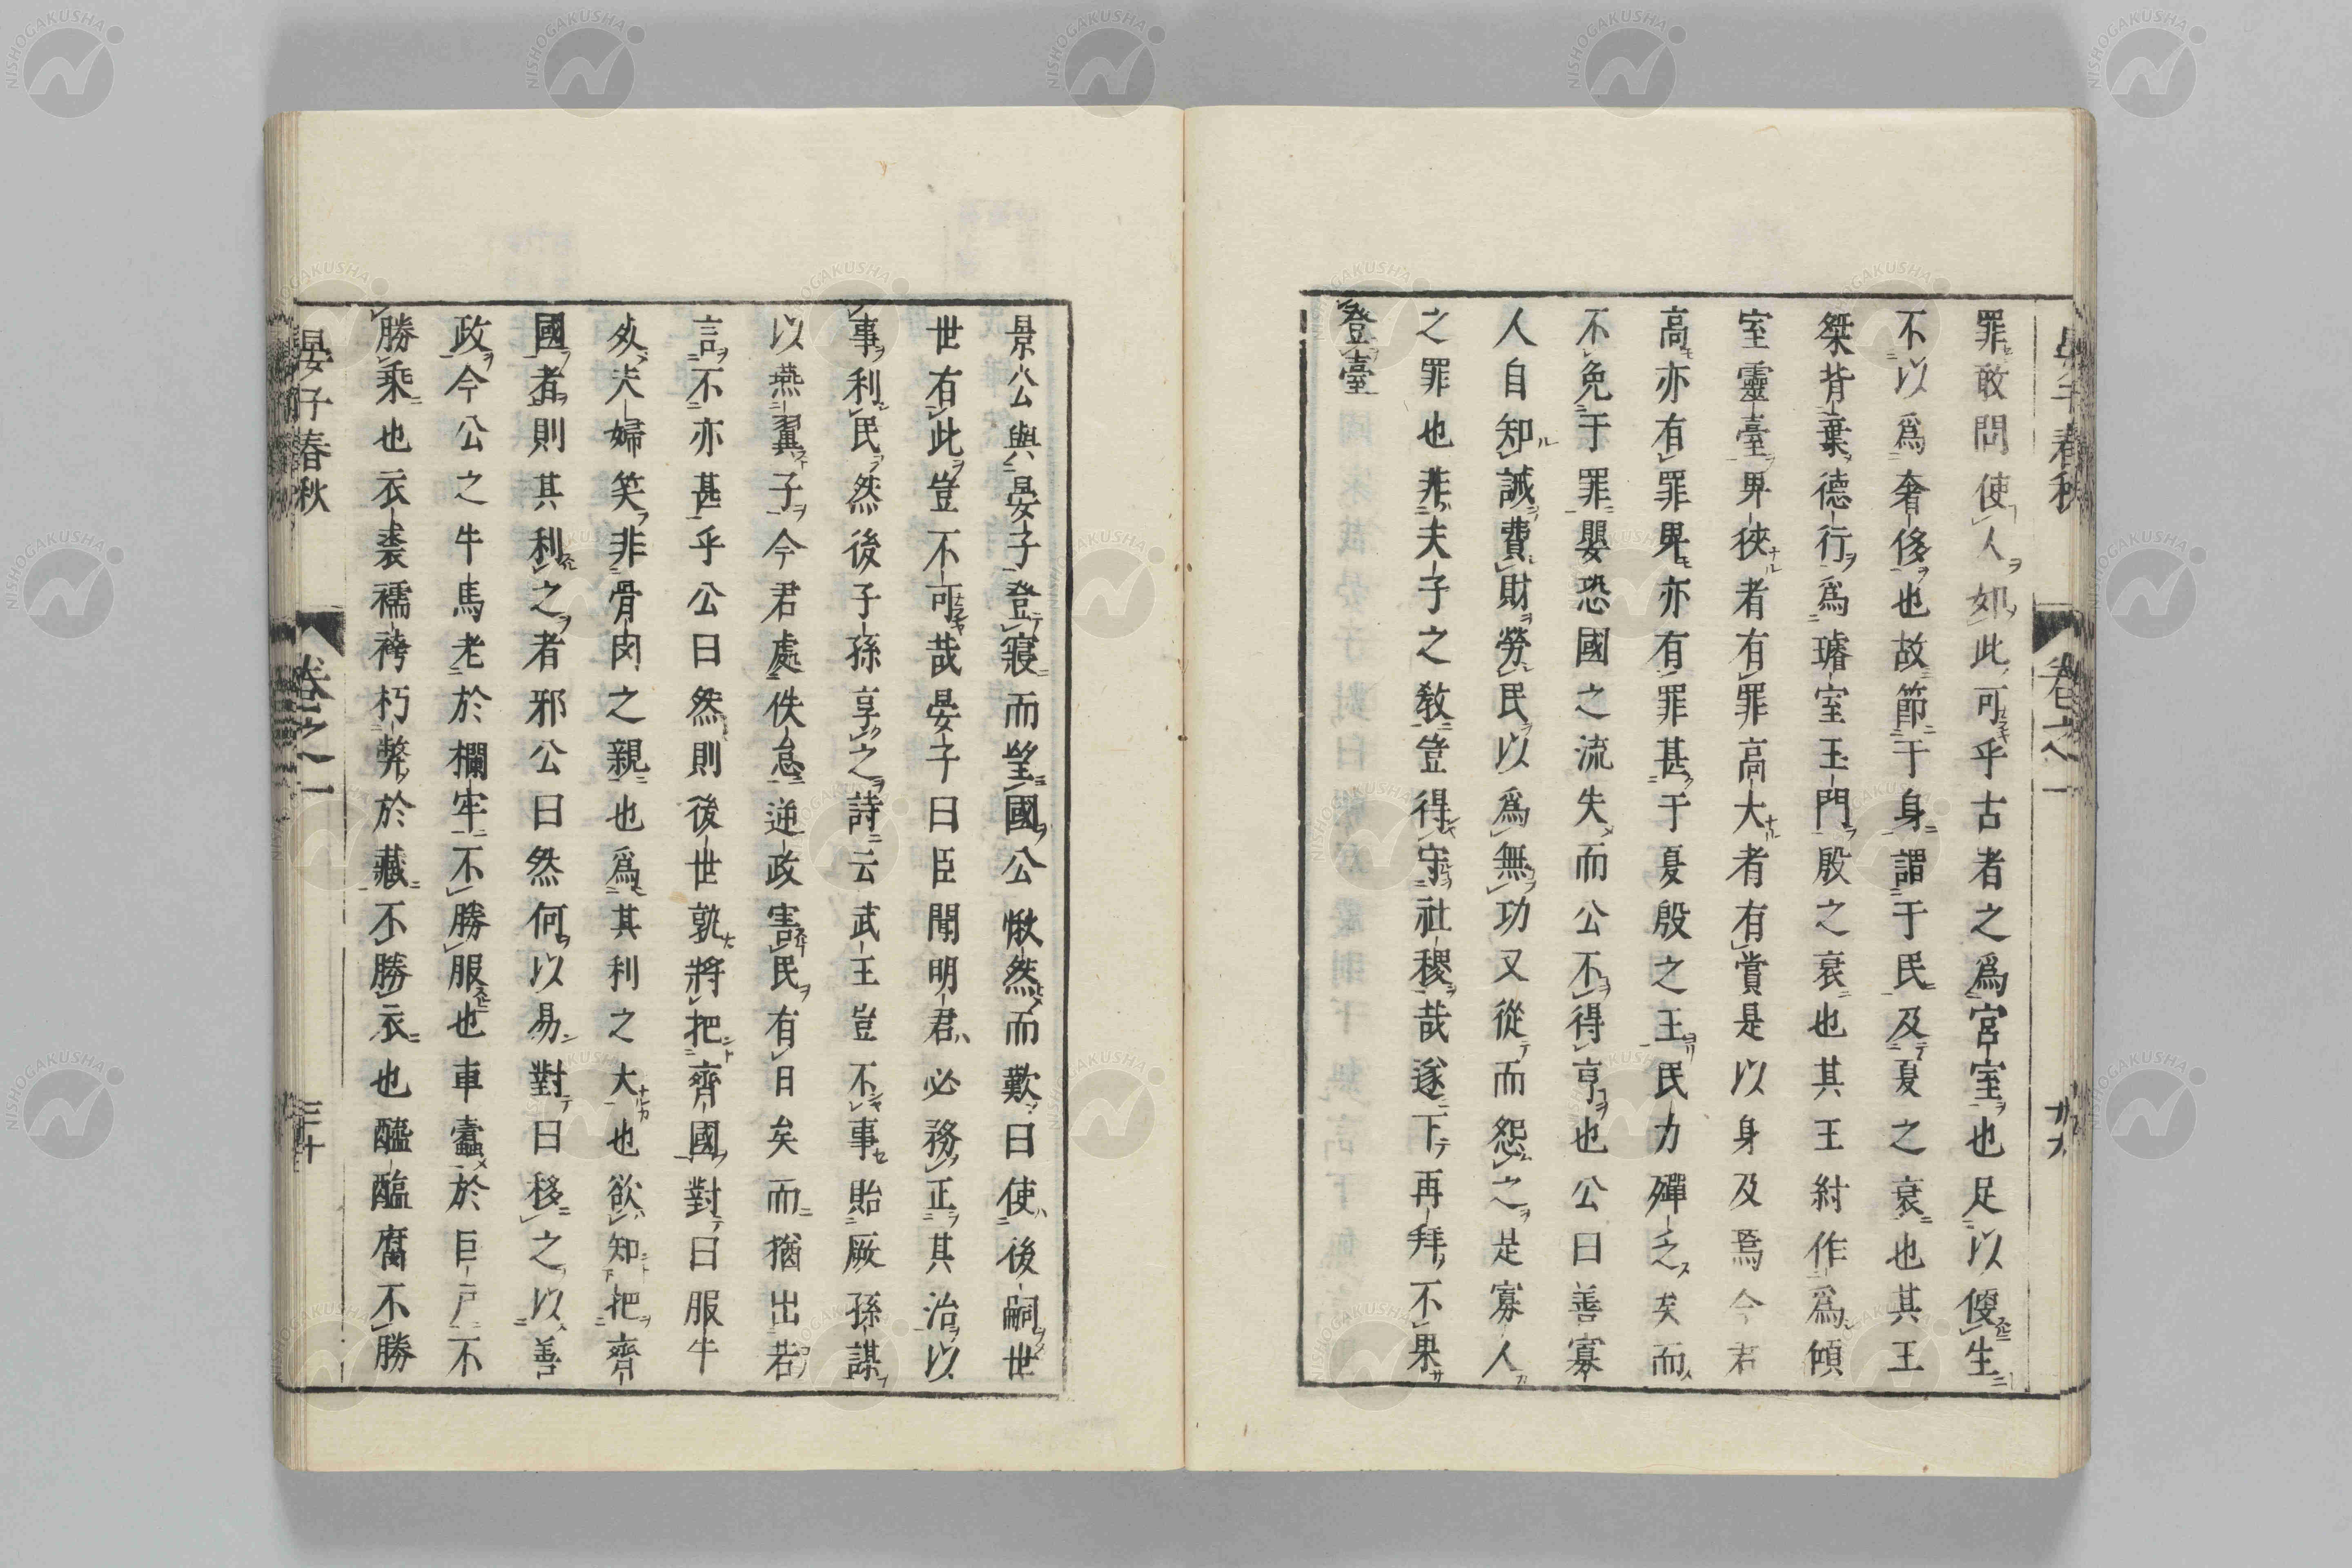 晏子春秋 卷之一 廿九
罪敢問使人如此可乎古者之爲宮室也足以㑮生
不以爲奢侈也故節于身謂于民及夏之衰也其王
桀背棄德行爲璿室玉門殷之衰也其王紂作爲傾
室靈臺卑狹者有罪高大者有賞是以身及焉今君
高亦有罪卑亦有罪甚于夏殷之王民力殫乏矣而
不免于罪嬰恐國之流失而公不得亨也公曰善寡
人自知誠費財勞民以爲無功又從而怨之是寡人
之罪也非夫子之敎豈得守社稷哉遂下再拜不果
登臺
景公與晏子登寢而望國公愀然而歎曰使後嗣世
世有此豈不可哉晏子曰臣聞明君必務正其治以
事利民然後子孫享之詩云武王豈不事貽厥孫謀
以燕翼子今君處佚怠逆政害民有日矣而猶出若
言不亦甚乎公曰然則後世孰將把齊國對曰服牛
死夫婦笑非骨肉之親也爲其利之大也欲知把齊
國者則其利之者邪公曰然何以易對曰移之以善
政今公之牛馬老於欄牢不勝服也車蠹於巨戸不
勝乘也衣裘襦袴朽弊於藏不勝衣也醯醢腐不勝
晏子春秋 卷之一 三十